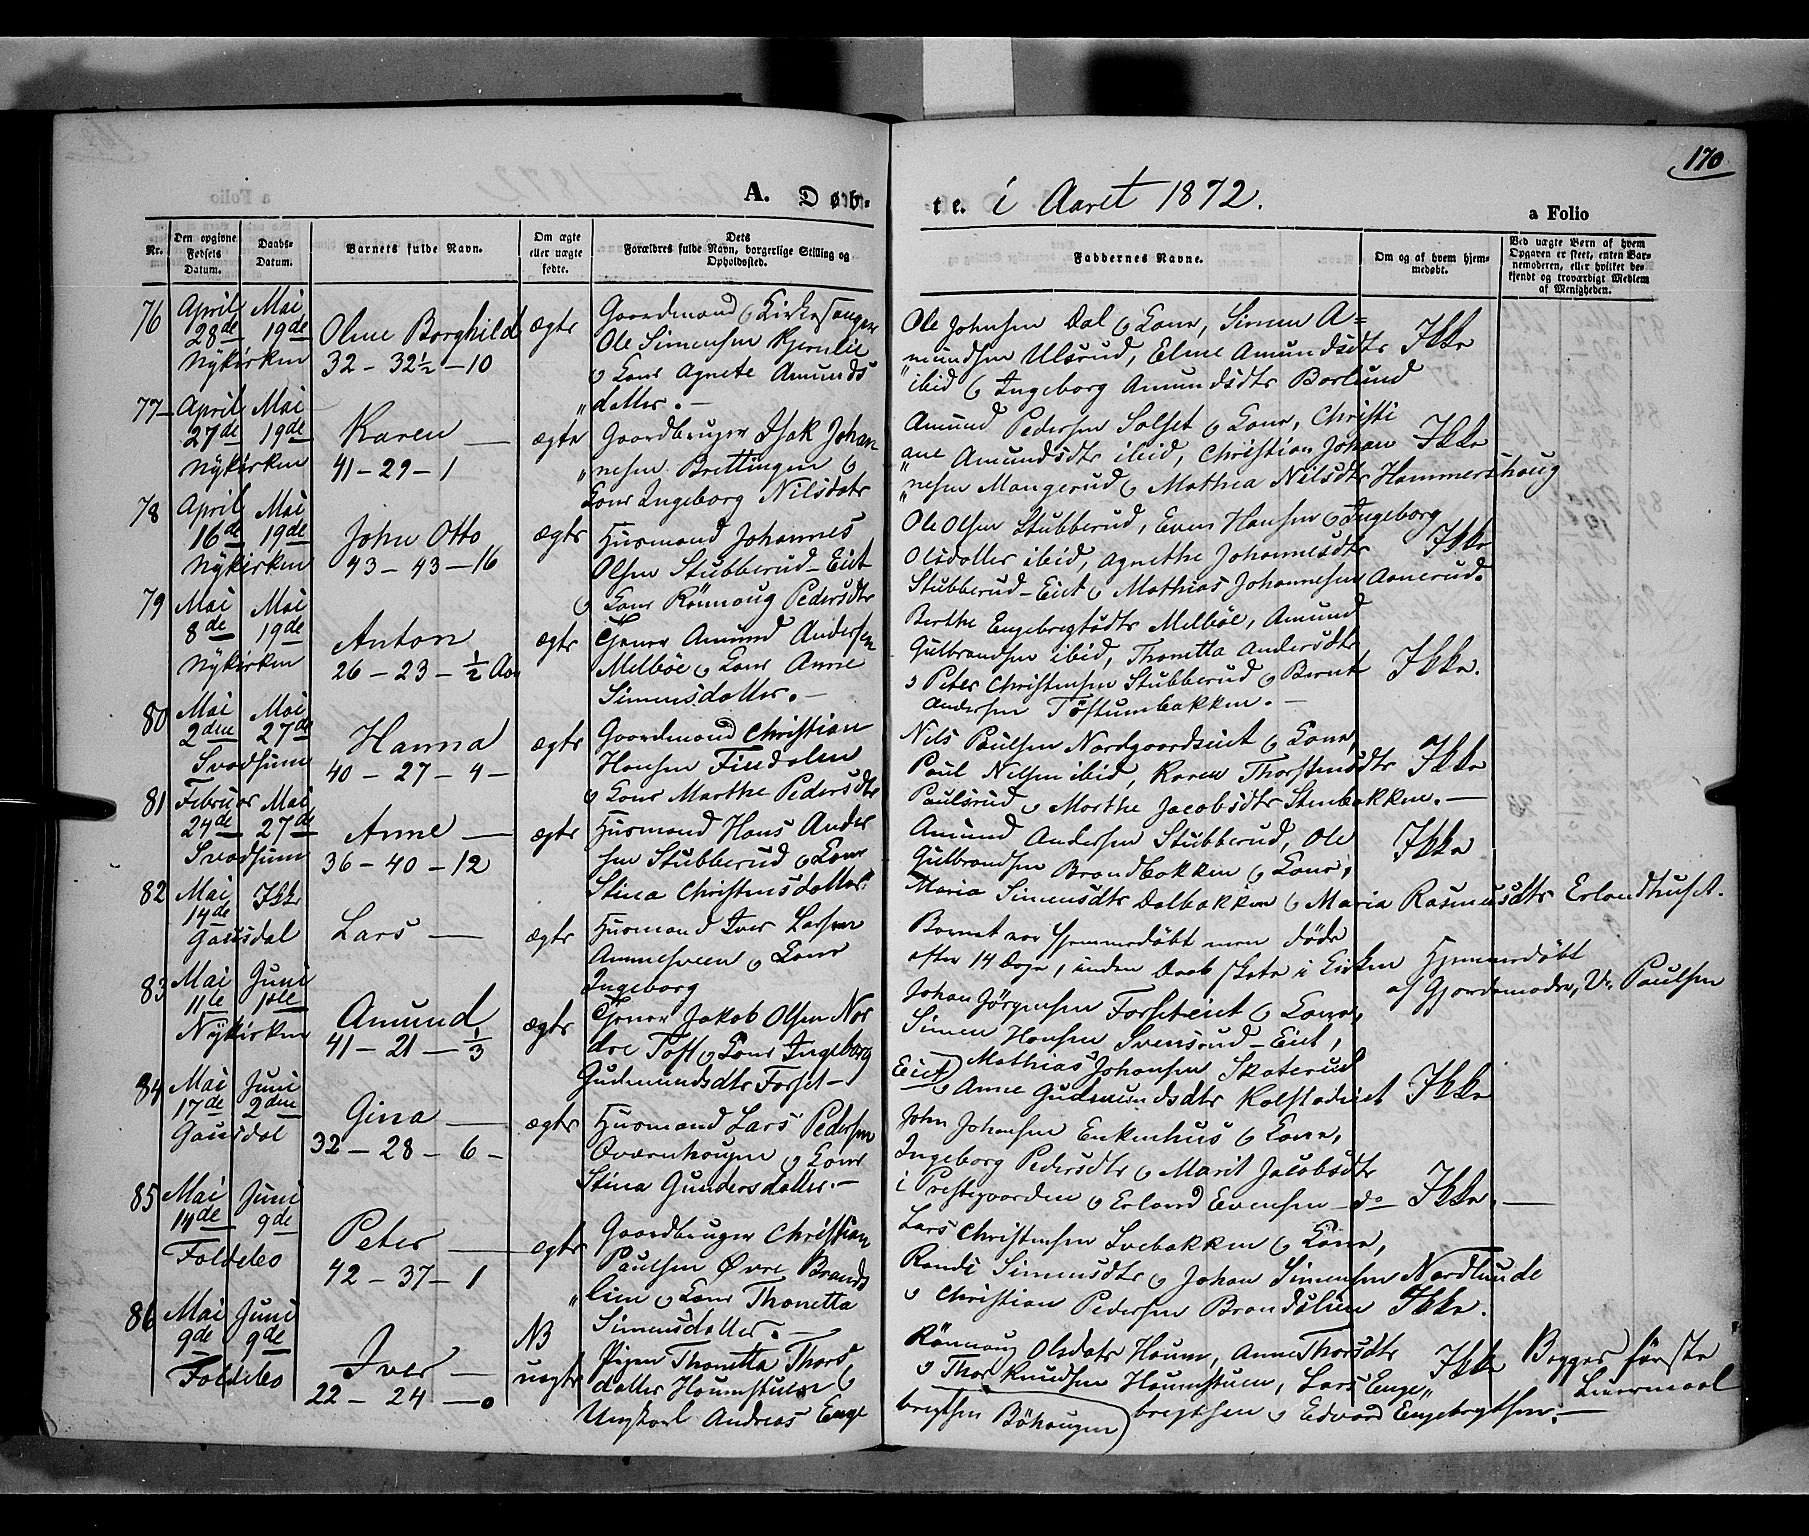 170
A. Døb-
te. i Aaret 1872.
a Folio
Nr.
Den opgivne Fødsels Datum.
Daabs-Datum.
Barnets fulde Navn.
Om ægte eller uægte fødte.
Dets Forældres fulde Navn, borgerlige Stilling og Opholdssted.
Faddernes Navne.
Om og af hvem hjemmedøbt.
Ved uægte Børn af hvem Opgaven er skeet, enten Barnemoderen, eller hvilket bekjendt og troværdigt Medlem af Menigheden.
76 April 28de Mai 19de Nykirken
Oline Borghild
32 - 32½ - 10
ægte
Gaardmand & Kirkesanger
Ole Simensen Kjernlie
& Kone Agnete Amunds
" datter. -
Ole Johnsen Dal & Kone, Simen A=
" mundsen Ulsrud, Eline Amundsdtr
ibid & Ingeborg Amundsdtr Borlund
Ikke
77 - April 27de Mai 19de Nykirken
Karen -
41 - 29 - 1
ægte
Gaardbruger Isak Johan
" nesen Brettingen &
Kone Ingeborg Nilsdatr
Amund Pedersen Solset & Kone, Christi
ane Amundsdtr ibid, Christian Johan
" nesen Mangerud & Mathea Nilsdtr Hammershaug
Ikke
78 April 16de Mai 19de Nykirken
John Otto
43 - 43 - 16
ægte
Husmand Johannes
Olsen Stubberud-Eiet
& Kone Rönnaug Pedersdtr
Ole Olsen Stubberud, Even Hansen & Ingeborg
Olsdatter ibid, Agnethe Johannesdtr
Stubberud-Eiet & Mathias Johannesen Aanerud.
Ikke
79 Mai 8de Mai 19de Nykirken
Anton
26 - 23 - ½ Aar
ægte
Tjener Amund Andersen
Melböe & Kone Anne
Simensdatter. -
Berthe Engebregtsdtr Melböe, Amund
Gulbrandsen ibid, Thonetta Andersdtr
& Peter Christensen Stubberud & Bernt
Andersen Töftumbakken. -
Ikke.
80 Mai 2den Mai 27de Svadsum
Hanna
40 - 27 - 4 -
ægte
Gaardmand Christian
Hansen Findalen
& Kone Marthe Pedersdtr
Nils Paulsen Nordgaardseiet & Kone,
Paul Nilsen ibid, Karen Thorstensdtr
Paulsrud & Marthe Jacobsdtr Stenbakken. -
Ikke
81 Februar 24de Mai 27de Svadsum
Anne -
36 - 40 - 12
ægte
Husmand Hans Ander
sen Stubberud & Kone
Stina Christensdatter.
Amund Andersen Stubberud, Ole
Gulbrandsen Brandbakken & Kone,
Maria Simensdtr Dalbakken & Maria Rasmusdtr Erlandhuset.
Ikke
82 Mai 14de Ikke Gausdal
Lars -
ægte
Husmand Iver Larsen
Amnesveen & Kone
Ingeborg
Barnet var Hjemmedøbt men døde
efter 14 Dage, inden Daab skete i Kirken
Hjemmedøbt
af Gjordemodre, V. Paulsen
83 Mai 11te Juni 1ste Nykirken
Amund
41 - 21 - ⅓
ægte
Tjener Jakob Olsen Nor
dre Toft & Kone Ingeborg
Gudmundsdtr Forset -
Johan Jörgensen Forseteiet & Kone,
Simen Hansen Svensrud-Eiet,
Eiet) Mathias Johansen Skaterud
& Anne Gudmundsdtr Kalstadeiet
Ikke
84 Mai 17de Juni 2den Gausdal
Gina -
32 - 28 - 6 -
ægte
Husmand Lars Pedersen
Qværnhaugen & Kone
Stina Gundersdatter. -
John Johansen Enkenhus & Kone,
Ingeborg Pedersdtr & Marit Jacobsdtr
i Prestegaarden & Erland Evensen - do -
Ikke. -
85 Mai 14de Juni 9de Foldebo
Peter -
42 - 37 - 1
ægte
Gaardbruger Christian
Paulsen Øvre Brands
" lien & Kone Thonetta
Simensdatter. -
Lars Christensen Svebakken & Kone,
Randi Simensdtr & Johan Simensen Nordlunde
& Christian Pedersen Brandslien
Ikke.
86 Mai 9de Juni 9de Foldebo
Iver -
22 - 24 - 0
NB
uægte
Pigen Thonetta Thors
datter Haumstuen &
Ungkarl Andreas Enge
bregtsen Böhaugen)
Rönnaug Olsdatr Haum, Anne Thorsdtr
& Thor Knudsen Haumstuen, Lars Enge"
bregtsen & Edvard Engebregtsen. -
Ikke
Begges første
Leiermaal